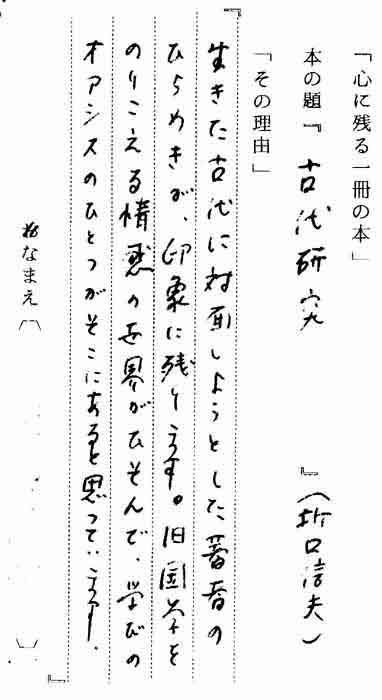 「心に残る一冊の本」
本の題『古代研究』(折口信夫)
「その理由」
『生きた古代に対面しようとした著者の
ひらめきが、印象に残ります。旧国学を
のりこえる情感の世界がひそんで、学びの
オアシスのひとつがそこにあると思っています。』
おなまえ〔 〕